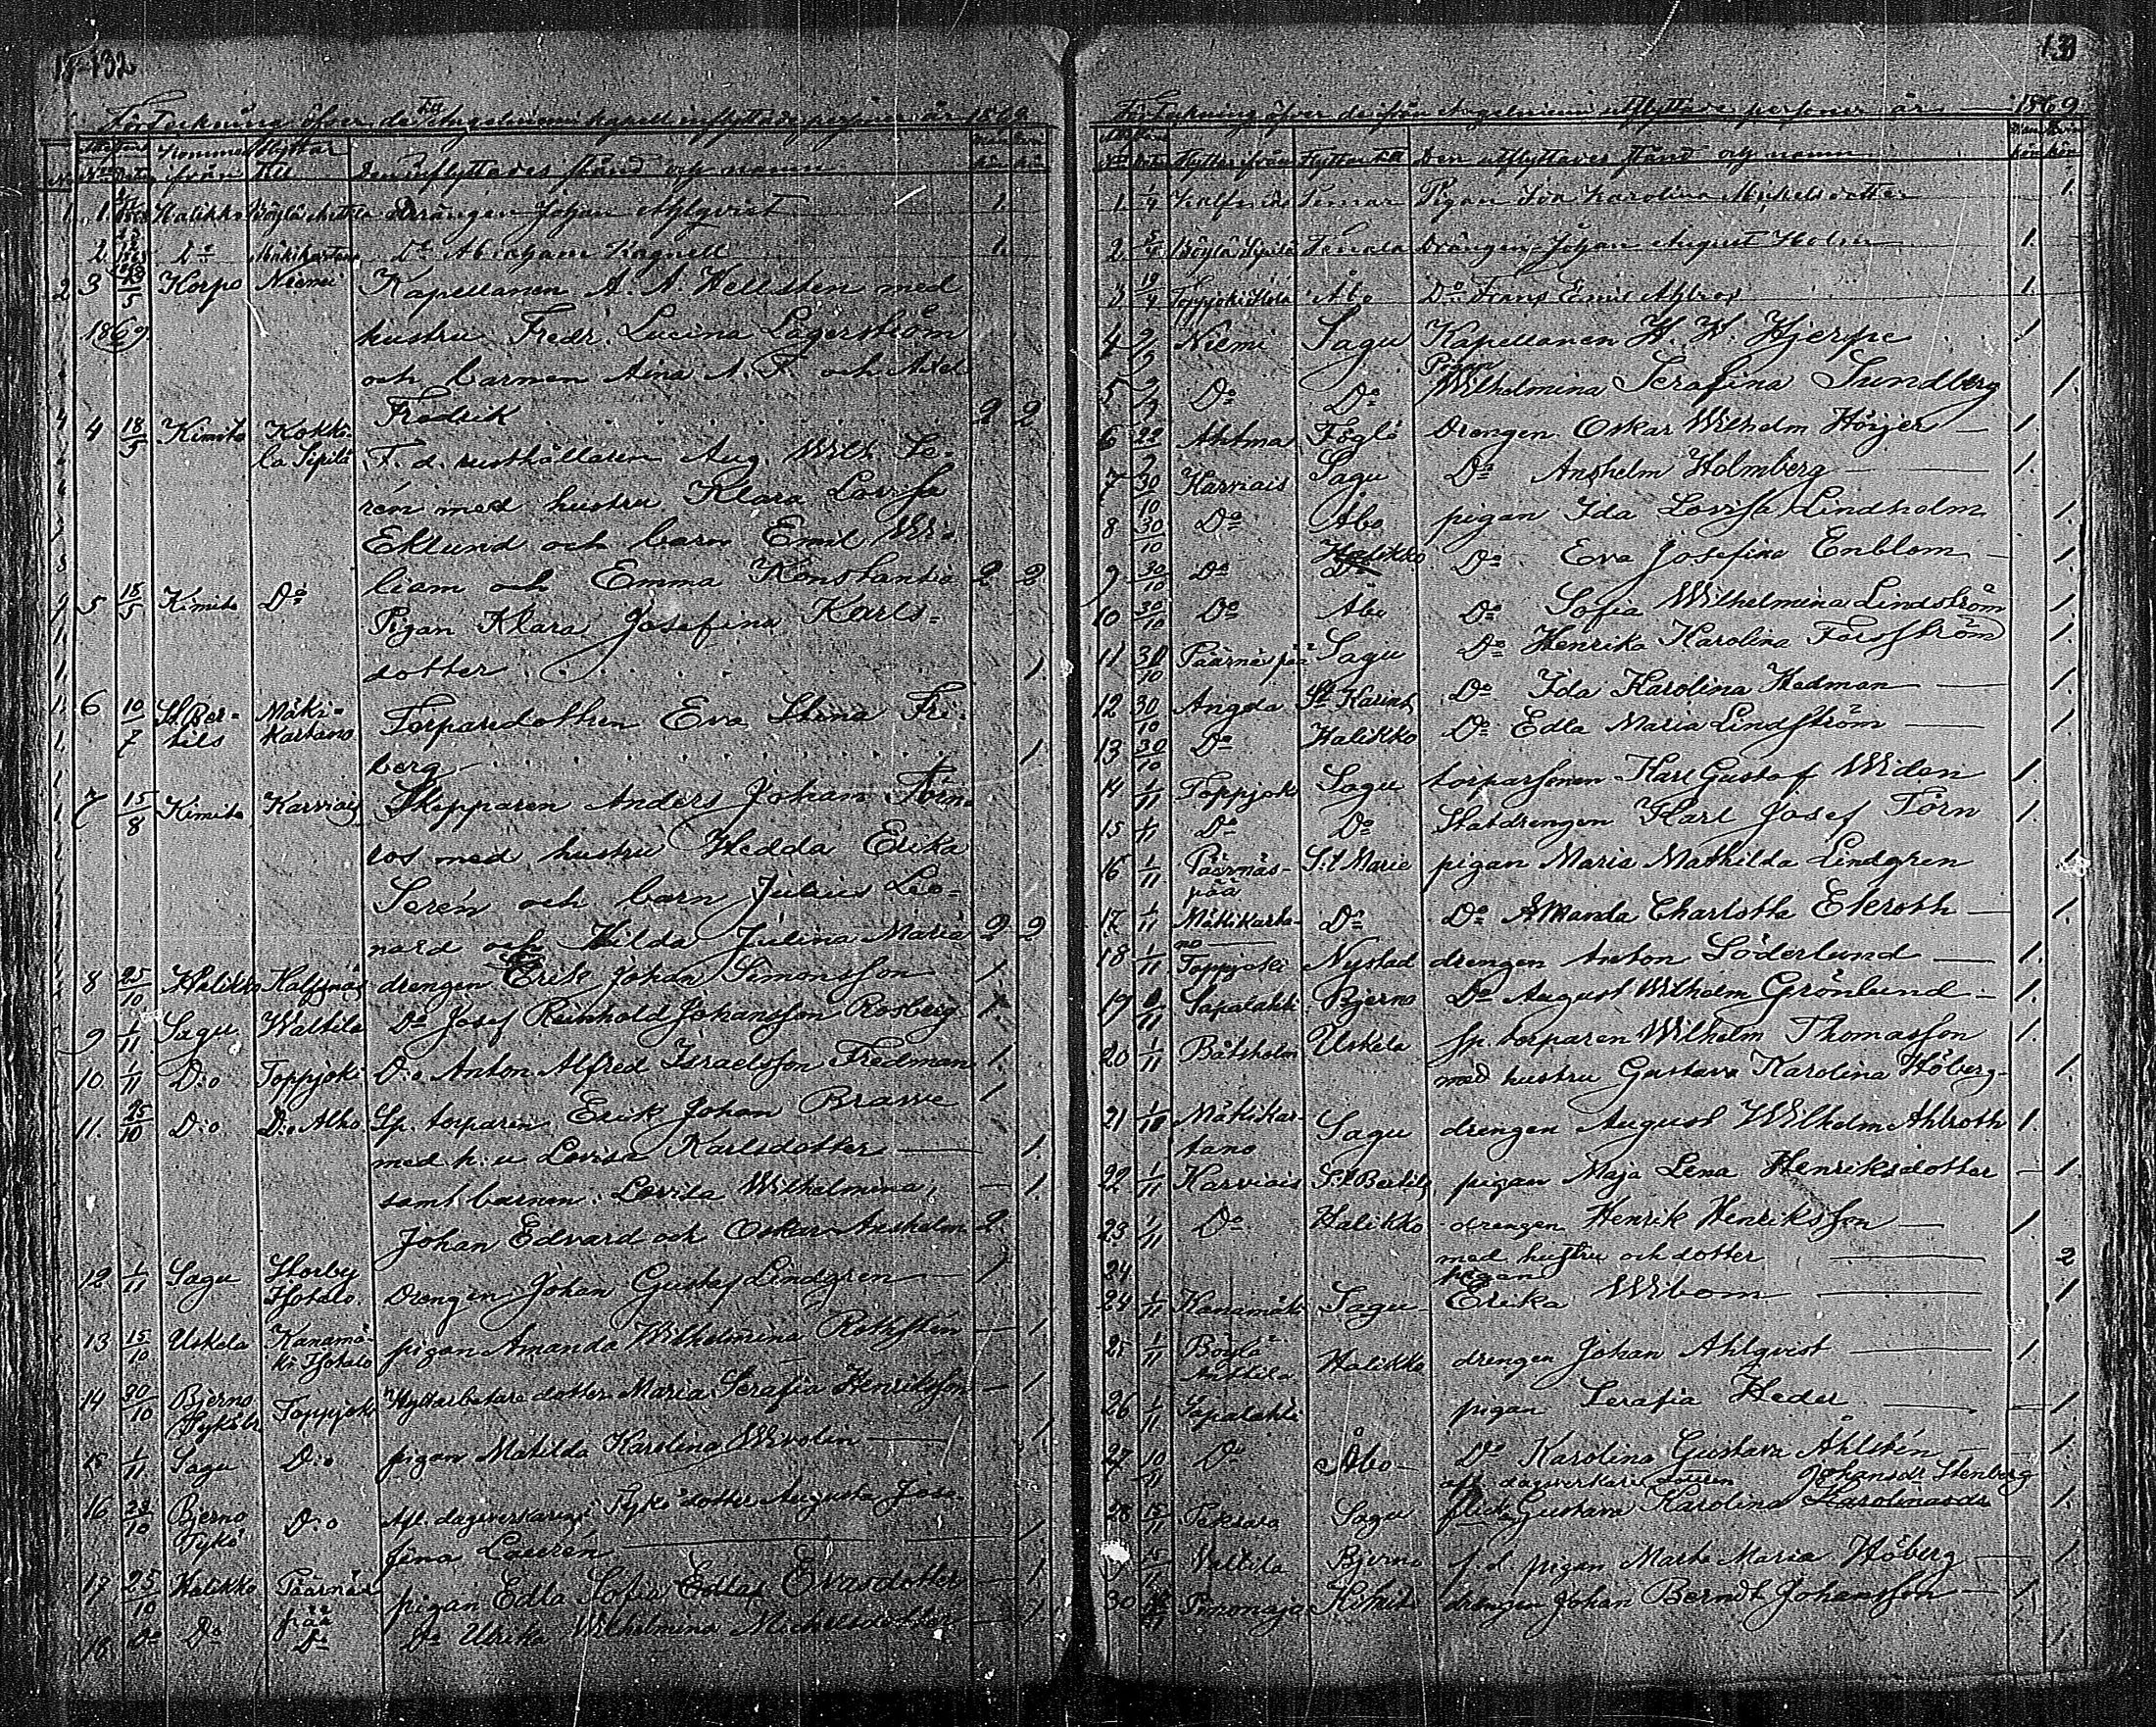 132
Förteckning öfver de Till Angelniemi kapell inflyttade personer år 1869
Kommer från Flyttar till Den inflyttades stånd och namn
1. 1. Halikko Böylä Anttila Drängen Johan Ahlqvist 1.
2. Do Mäkikartano Do Abraham Kagnell 1.
2 3 /5 Korpo Niemi Kapellanen A. A. Hellsten med
1869. hustru Fredr. Lucina Lagerström
och barnen Aina A. F. och Axel
Fredrik 2 2
4 18/5 Kimito Kokki-
la Sipilä F. d. rusthållaren Aug. Wilh. Se-
rén med hustru Klara Lovisa
Eklund och barn Emil Wi-
liam och Emma Konstantia 2 2
5 18/5 Kimito Do Pigan Klara Josefina Karls-
dotter 1.
6 10/7 St Ber- Mäki- Torparedottren Eva Stina Fri-
tils kartano berg 1
7 15/8 Kimito Karviais Skepparen Anders Johan Törn-
ros med hustru Hedda Erika
Serén och barn Julius Leo-
nard och Hilda Julina Maria 2 2
8 25/10 Halikko Kalfsnäs drengen Erik Johan Simonsson 1.
9 1/11 Sagu Waltila Do Josef Reinhold Johansson Rosberg 1.
10. 1/11 D:o Toppjoki D:o Anton Alfred Israelsson Fredman 1.
11. 25/10 D:o D:o Alho Sp. torparen Erik Johan Brawe 1
med h:u Lovisa Karlsdotter 1.
samt barnen: Lovisa Wilhelmina, 1.
Johan Edvard och Oskar Anshelm 2
12. 1/11 Sagu Storby
Isotalo. Drengen Johan Gustaf Lindgren 1
13 15/10 Uskela Kanamä-
ki Isotalo pigan Amanda Wilhelmina Rothstén 1
14 30/10 Bjerno
Tykö Toppjoki Hyttarbetare dotter Maria Serafia Henriksson 1
15 1/11 Sagu D:o pigan Matilda Karolina Wivolin 1
16 28/10 Bjerno
Tykö D:o Afl. dagsverkarens Tykö dotter Augusta Jose-
fina Laurén 1
17 25/10 Halikko Päärnäs
pää pigan Edla Sofia Evasdotter 1
18. Do Do Do Do Ulrika Wilhelmina Michelsdotter 1
133
Förteckning öfver de ifrån Angelniemi utflyttade personer år 1869
Flyttar från Flyttar till Den utflyttades stånd och namn
1. 1/4 Kalfsnäs Pigan Eva Karolina Mickelsdotter 1.
2. 5/4 Böylä Sipilä Tenala Drängen Johan August Holm 1.
3 19/4 Toppjoki Åbo Do Frans Emil Ahlros 1.
4 2/9 Niemi Sagu Kapellanen H. W. Hjerppe 1
5 2/9 Do Do Pigan Wilhelmina Serafina Sundberg 1.
6 22/9 Ahtma Föglö Drengen Oskar Wilhelm Höijer 1.
7 30/10 Karviais Sagu Do Anshelm Holmberg 1.
8 30/10 Do Åbo pigan Ida Lovisa Lindholm 1.
9 30/10 Do Halikko Do Eva Josefina Enblom 1.
10 30/10 Do Åbo Do Sofia Wilhelmina Lindström 1.
11 30/10 Päärnäspää Sagu Do Henrika Karolina Forsström 1.
12 30/10 Angela St Karins Do Ida Karolina Hedman 1.
13 30/10 Do Halikko Do Edla Maria Lindström 1.
14 1/11 Toppjoki Sagu torparsonen Karl Gustaf Widen 1.
15 1/11 Do Do Statdrengen Karl Josef Törn 1.
16 1/11 Päärnäs-
pää S:t Marie pigan Maria Mathilda Lindgren
17. 1/11 Mäkikarta-
no Do Do Amanda Charlotta Ekroth 1.
18 1/11 Toppjoki Nystad drengen Anton Söderlund 1.
19 /11 Sapalahti Bjerno Do August Wilhelm Grönlund 1.
20 1/11 Båtsholm Uskela sp. torparen Wilhelm Thomasson 1.
med hustru Gustava Karolina Höberg 1.
21 1/11 Mäkikar-
tano Sagu drengen August Wilhelm Ahlroth 1.
22 1/11 Karviais S:t Bertils pigan Maja Lena Henriksdotter 1.
23 1/11 Do Halikko drengen Henrik Henriksson 1
med hustru och dotter 2
24
24 1/11 Kanamäki Sagu pigan Erika Wibom 1
25 1/11 Böylä
Anttila Halikko drengen Johan Ahlqvist 1
26 1/11 Sapalahti pigan Serafia Heder 1.
27 10/11 Do Åbo Do Karolina Gustava Åhlstén 1.
afl. dagsverkare Johansdr Stenberg
28 15/11 Peksala Sagu Gustava Karolina Karolinasdr 1.
15 Valtila Bjerno f. d. pigan Marta Maria Höberg 1.
30 Kimito drengen Johan Berndt Johansson 1.
1.